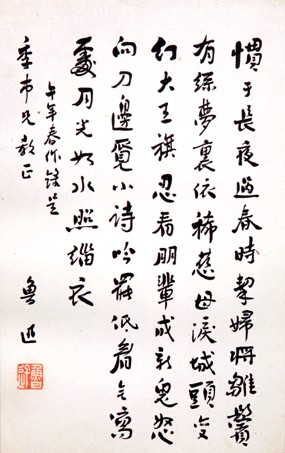 慣于長夜過春時挈婦將雛鬢
有絲夢裏依稀慈母淚城頭變
幻大王旗忍看朋輩成新鬼怒
向刀邊覓小詩吟罷低眉無寫
處月光如水照緇衣
午年春作錄呈
季市兄教正
魯迅
魯迅